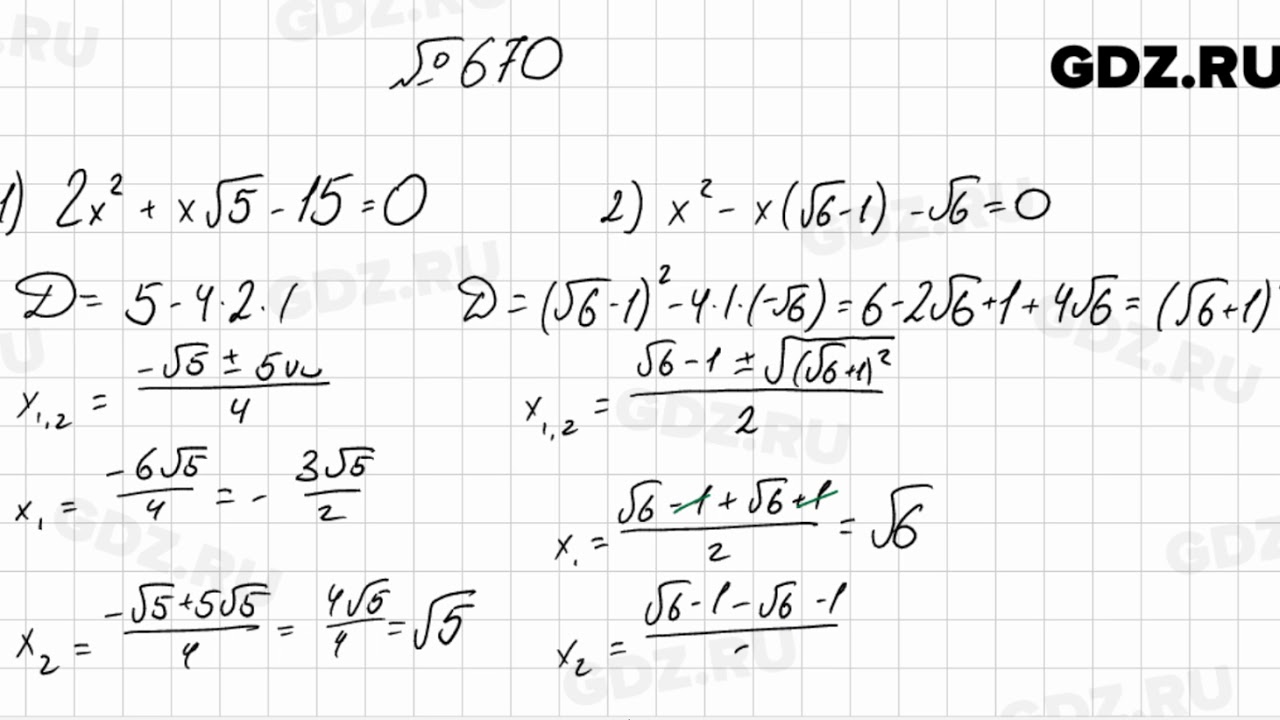 №670
GDZ.RU
1) 2x² + x√5 - 15 = 0
D = 5 - 4·2·(
x₁,₂ = (-√5 ± 5√)/4
x₁ = -6√5/4 = - 3√5/2
x₂ = (-√5+5√5)/4 = 4√5/4 = √5
2) x² - x(√6-1) - √6 = 0
D = (√6-1)² - 4·1·(-√6) = 6 - 2√6 + 1 + 4√6 = (√6+1)²
x₁,₂ = (√6 - 1 ± √(√6+1)²)/2
x₁ = (√6 - 1 + √6 + 1)/2 = √6
x₂ = (√6 - 1 - √6 - 1)/